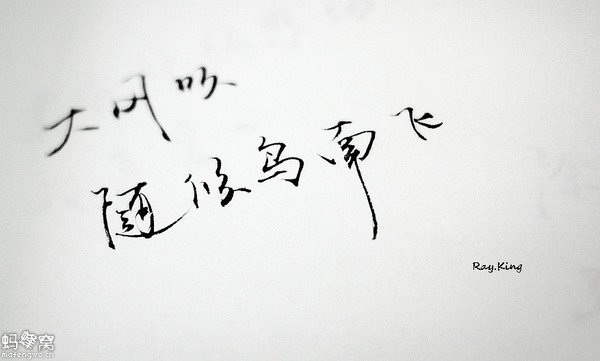 大风吹
随候鸟南飞
Ray.King
蚂蜂窝
mafengwo.cn